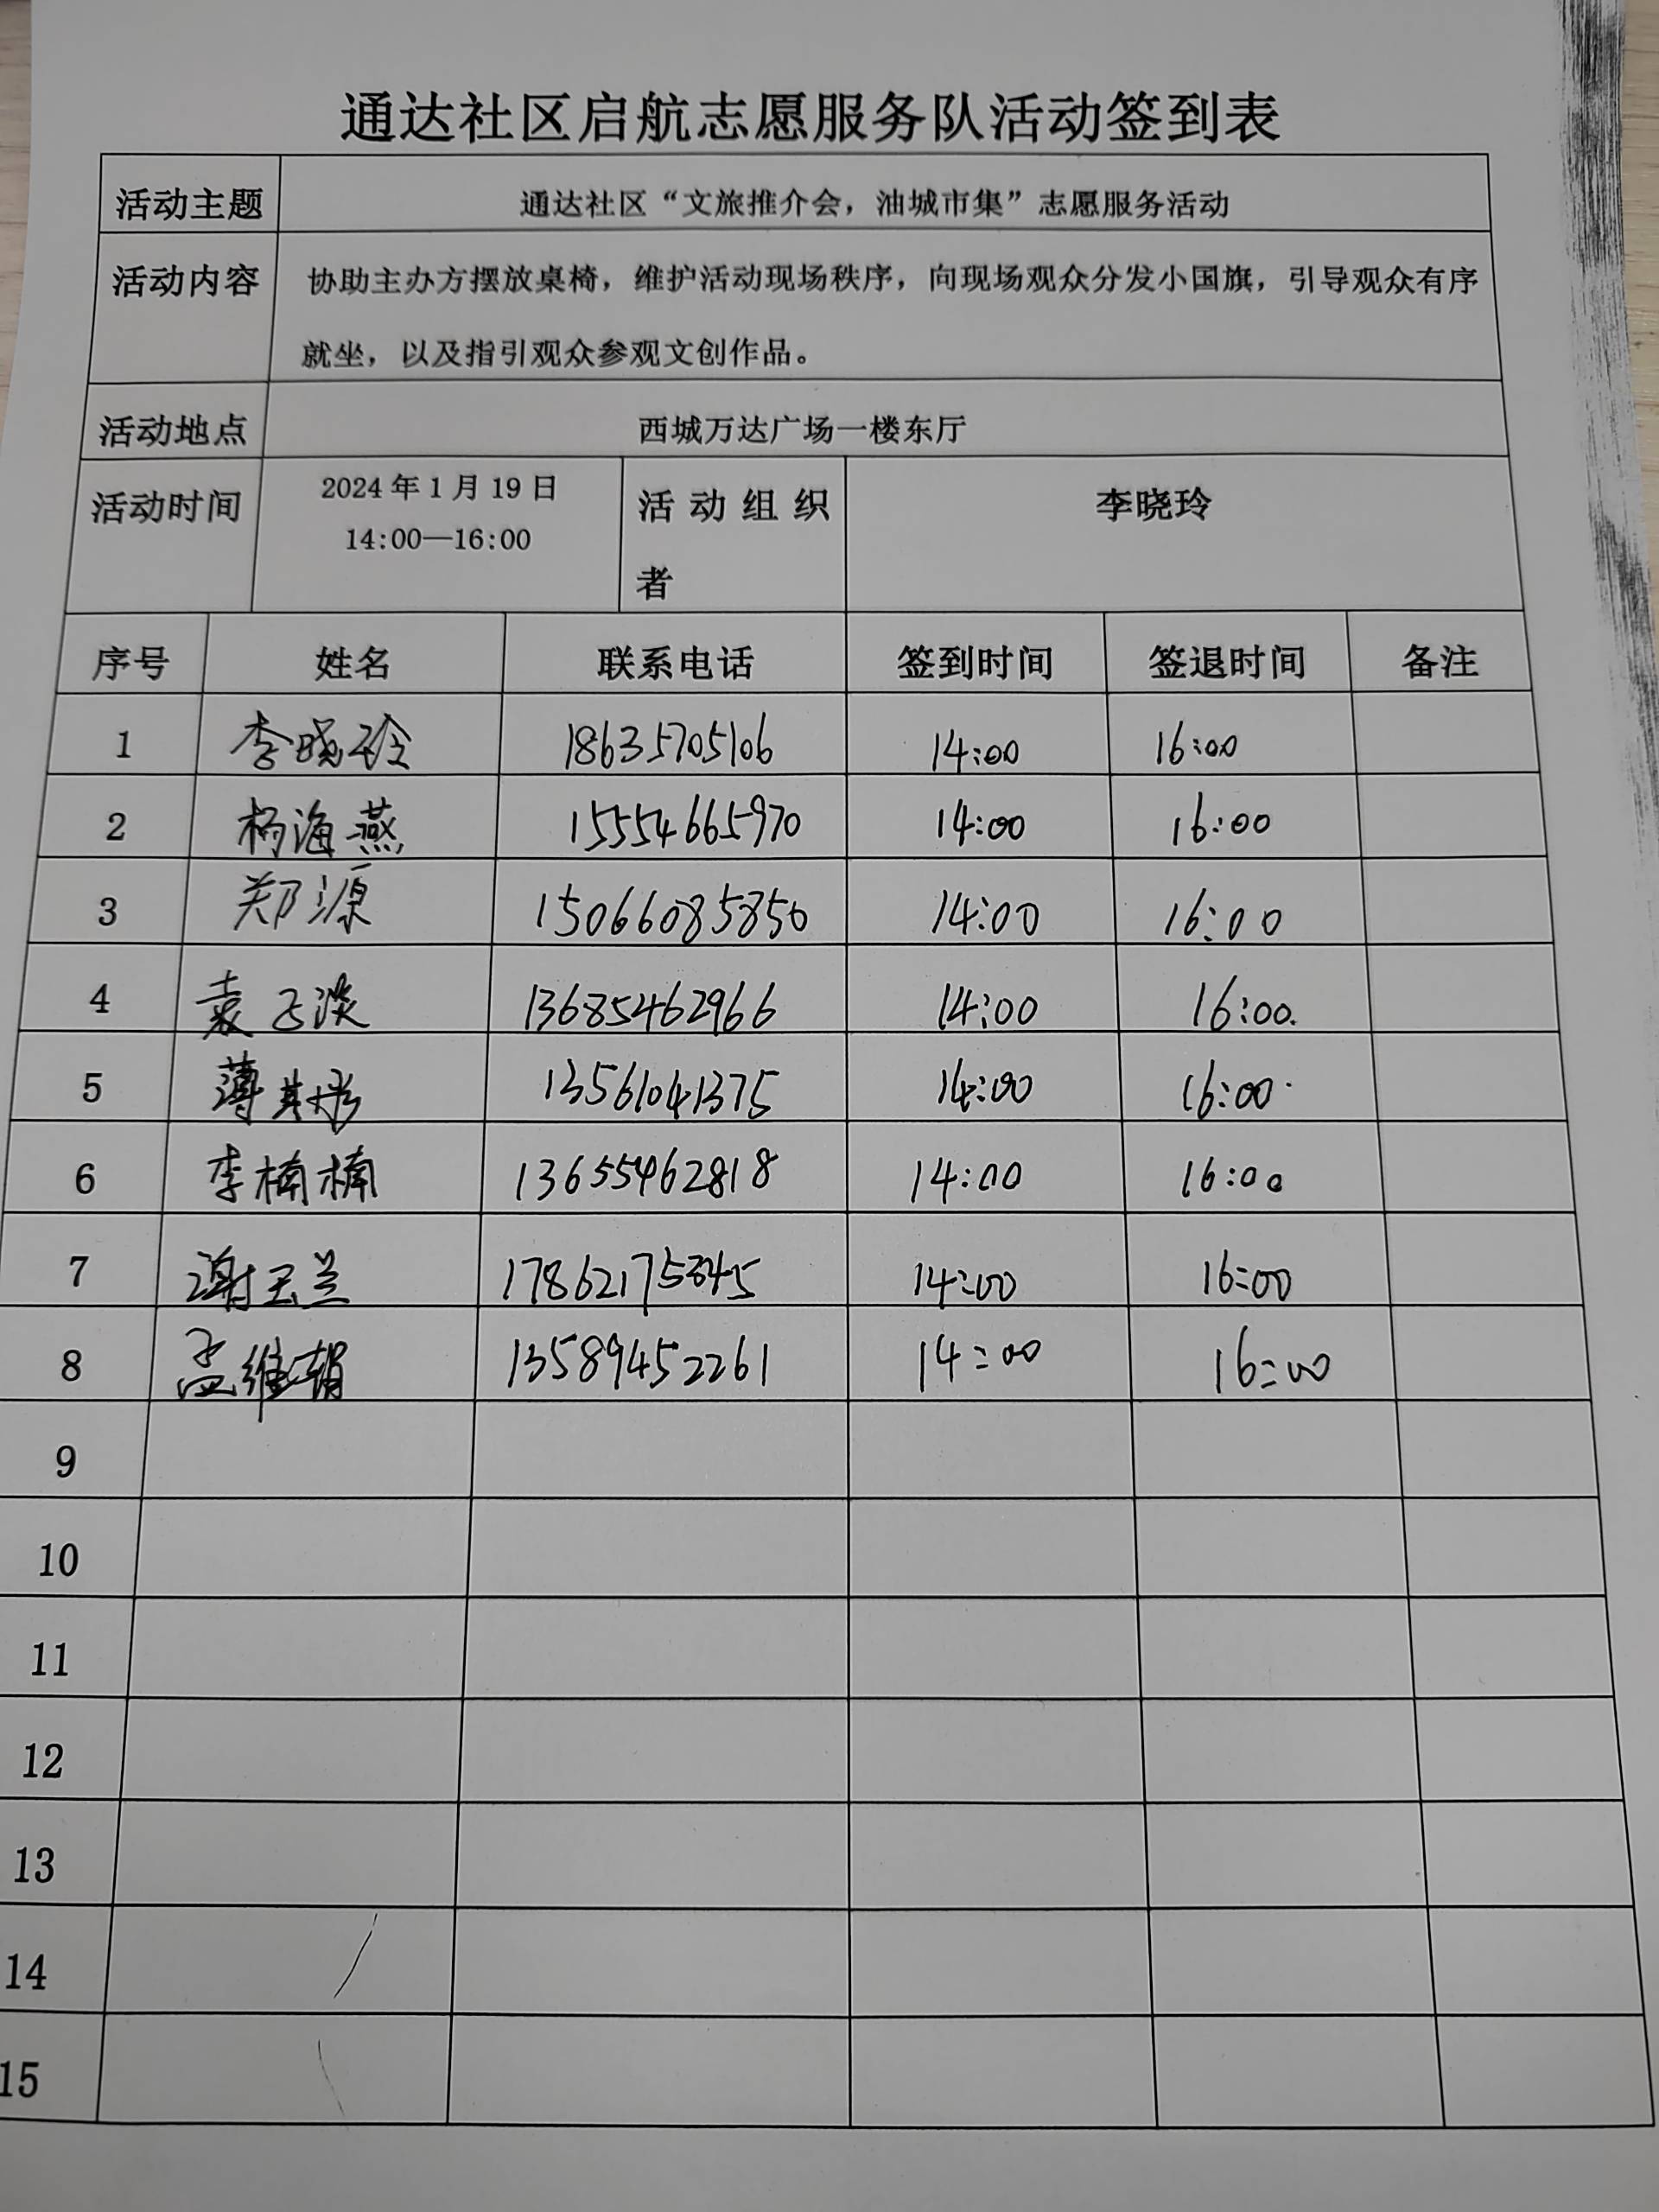 通达社区启航志愿服务队活动签到表
活动主题 通达社区“文旅推介会，油城市集”志愿服务活动
活动内容 协助主办方摆放桌椅，维护活动现场秩序，向现场观众分发小国旗，引导观众有序
就坐，以及指引观众参观文创作品。
活动地点 西城万达广场一楼东厅
活动时间 2024年1月19日 活动组织 李晓玲
14:00—16:00 者
序号 姓名 联系电话 签到时间 签退时间 备注
1 李晓玲 18635705106 14:00 16:00
2 杨海燕 15554665970 14:00 16:00
3 郑源 15066085850 14:00 16:00
4 13685462966 14:00 16:00.
5 13561041375 14:00 16:00
6 李楠楠 13655462818 14:00 16:00
7 谢玉兰 14:00 16:00
8 孟维娟 13589452261 14:00 16:00
9
10
11
12
13
14
15